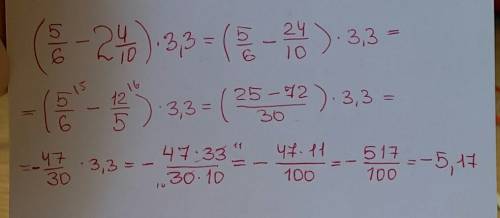 (5/6 - 2 4/10) · 3,3 = (5/6 - 24/10) · 3,3 =
= (5/6 ^15 - 12/5 ^16) · 3,3 = (25-72/30) · 3,3 =
= -47/30 · 3,3 = - 47·33 ^11/10 30·10 = - 47·11/100 = - 517/100 = -5,17